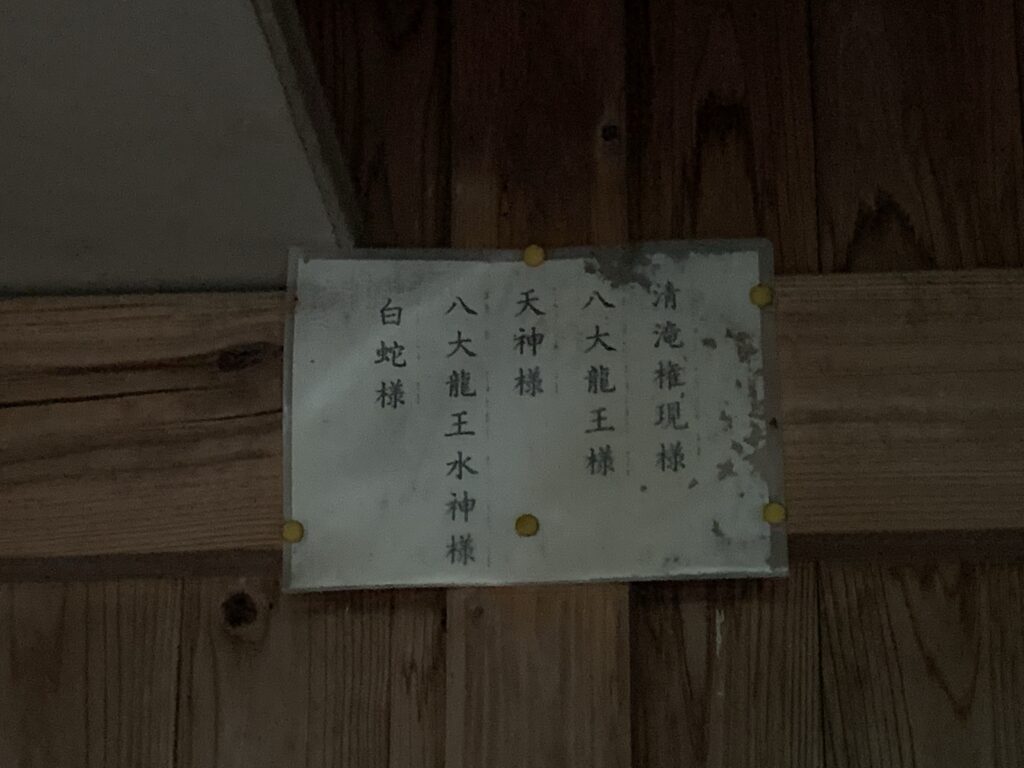 清滝権現様
八大龍王様
天神様
八大龍王水神様
白蛇様